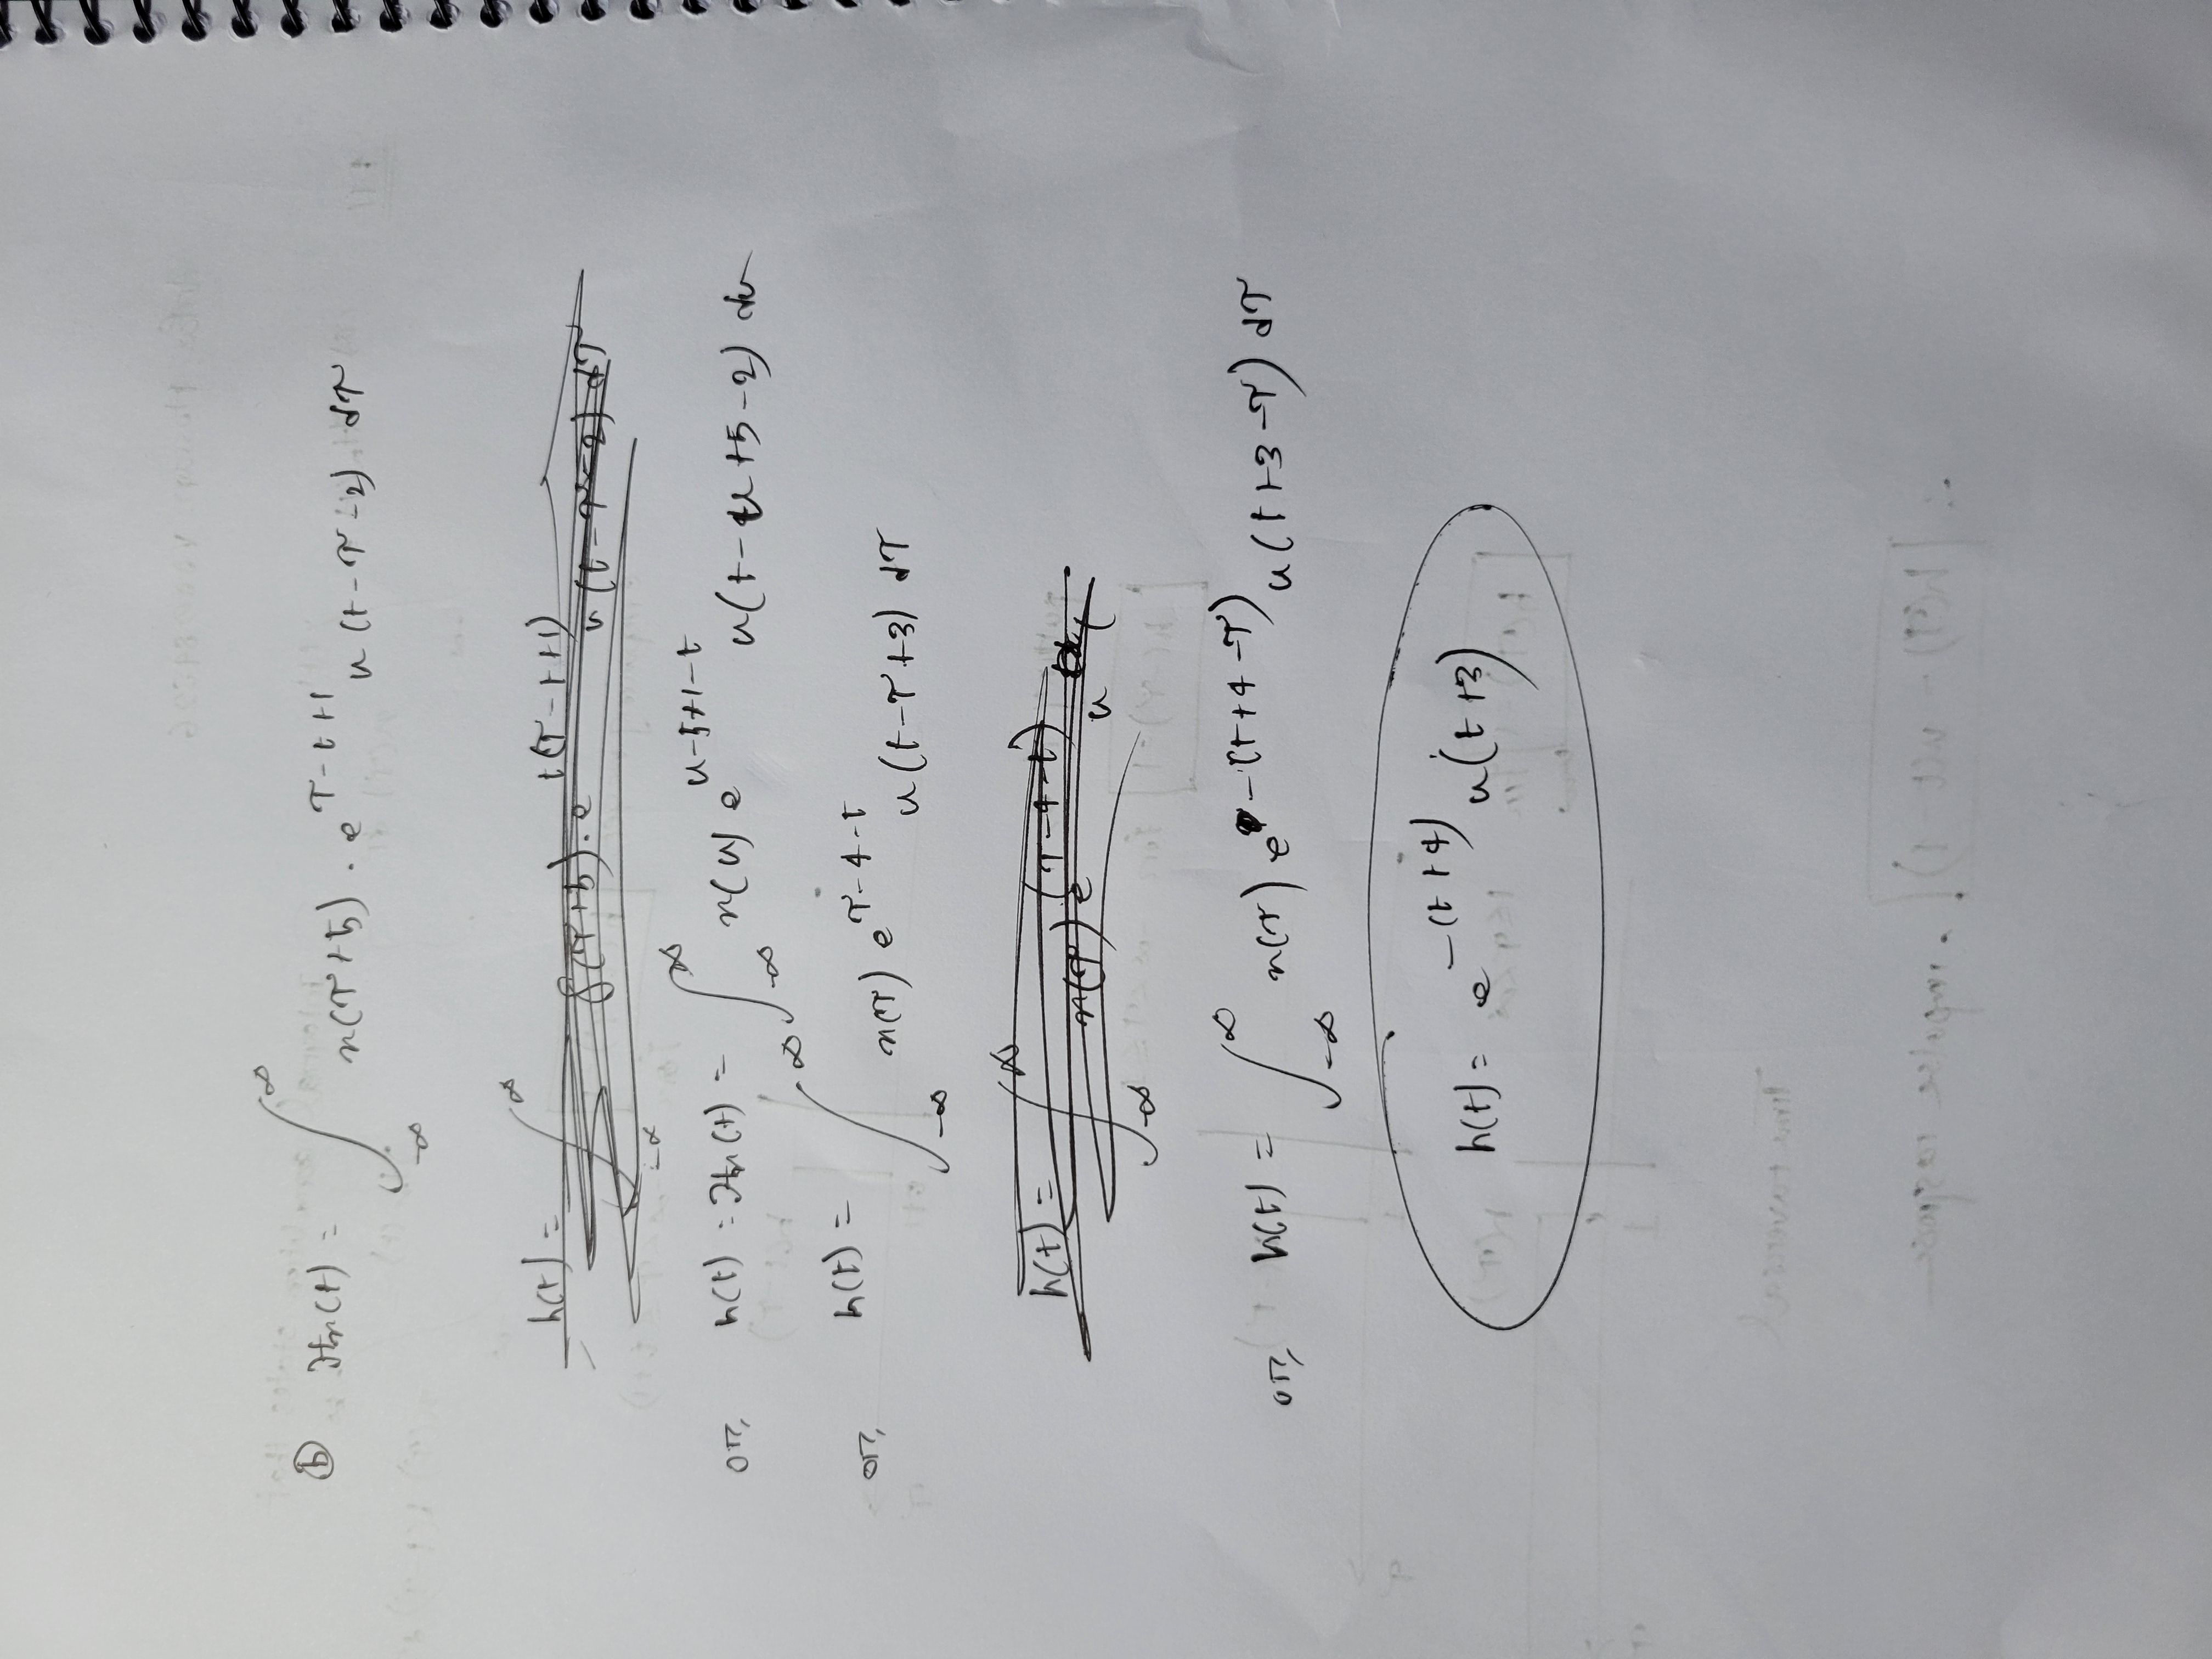 ⓑ ℋx(t) = ∫_{-∞}^{∞} x(τ+5) · e^{τ-t+1} u(t-τ-2) dτ
h(t) = ∫_{-∞}^{∞} δ(τ+5) · e^{t(τ-t+1)} u(t-τ-2) dτ
or, h(t) = ℋx(t) = ∫_{-∞}^{∞} x(u) e^{u-5+1-t} u(t-u+5-2) du
or, h(t) = ∫_{-∞}^{∞} x(τ) e^{τ-4-t} u(t-τ+3) dτ
h(t) = ∫_{-∞}^{∞} x(τ) e^{(τ-4-t)} u (
or, h(t) = ∫_{-∞}^{∞} x(τ) e^{-(t+4-τ)} u(t+3-τ) dτ
h(t) = e^{-(t+4)} u(t+3)